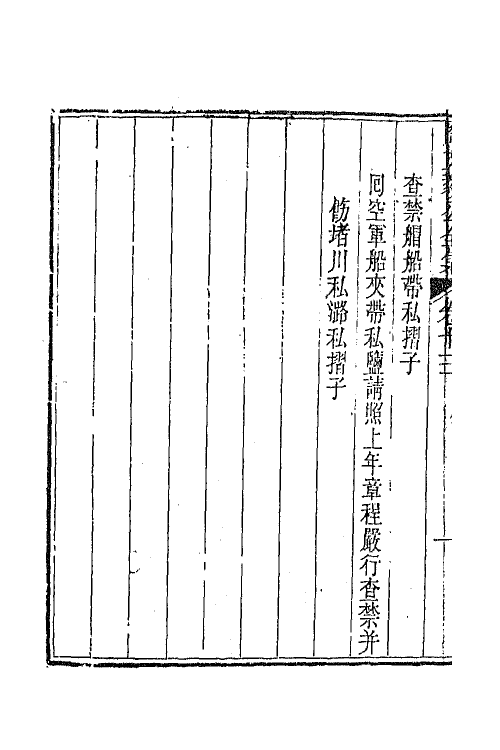 查禁艒船帶私摺子
囘空軍船夾帶私鹽請照上年章程嚴行查禁并
飭堵川私潞私摺子